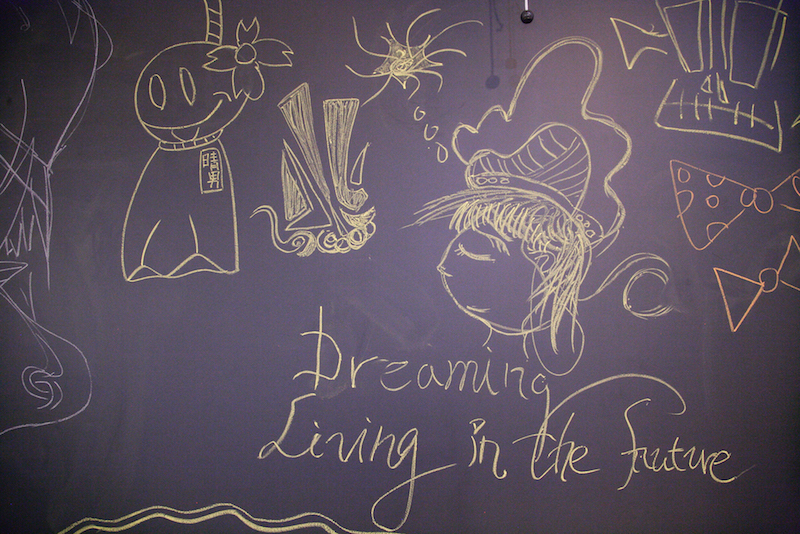 晴男
Dreaming
Living in the future